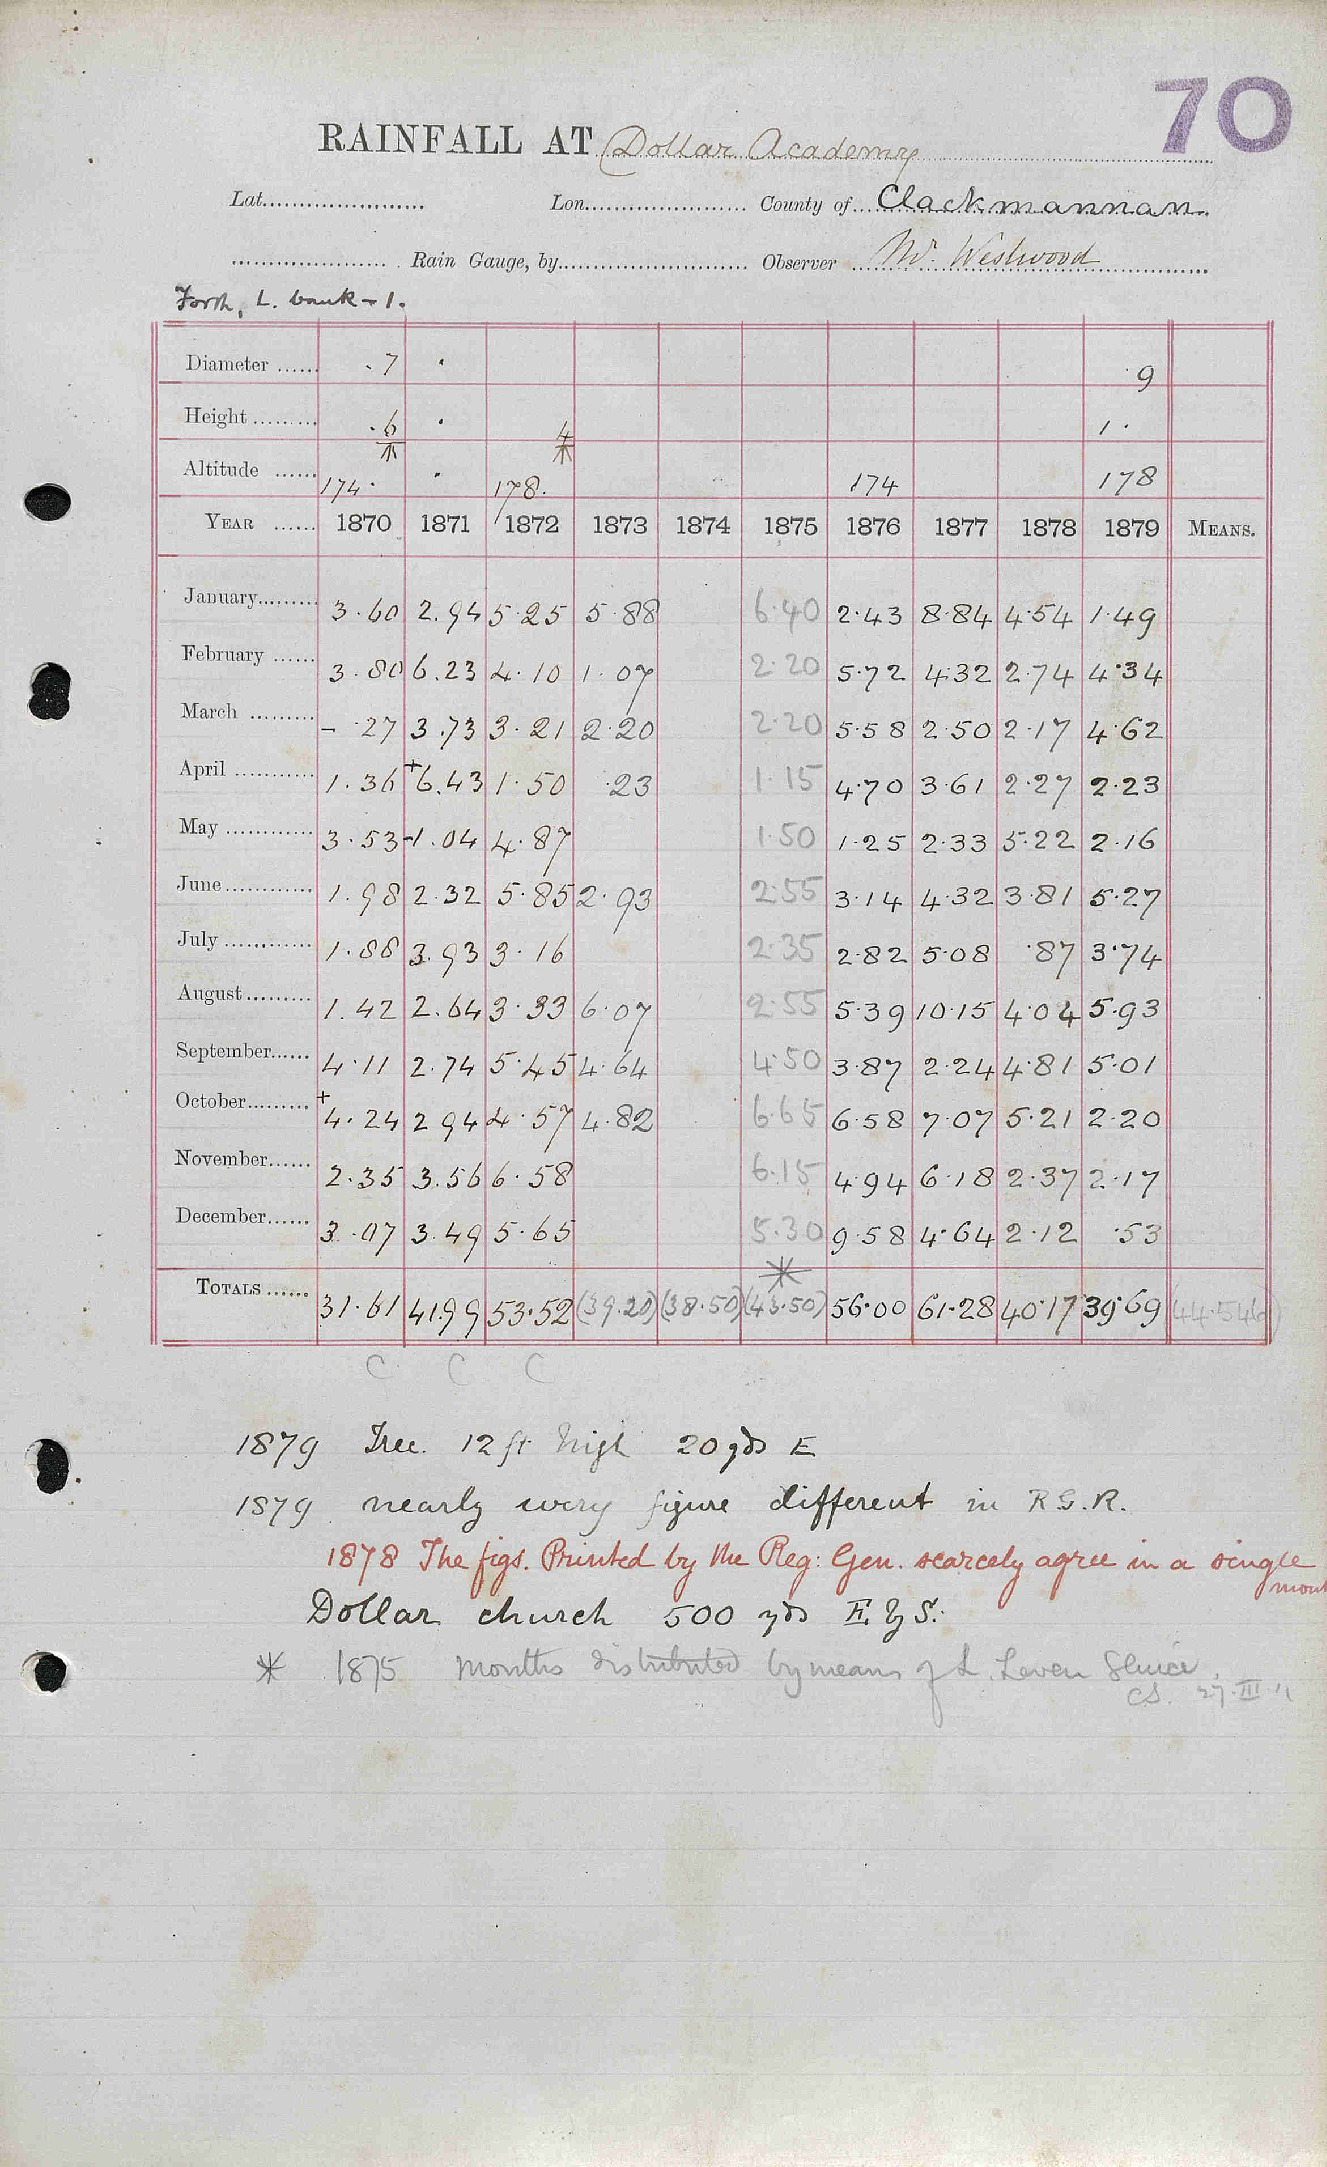 70
RAINFALL AT Dollar Academy
Lat. Lon. County of Clackmannan.
Rain Gauge, by Observer Mr. Westwood
Forth, L. bank - 1.
Diameter .7 · 9
Height .6 · 4 1·
Altitude 174· · 178. 174 178
YEAR 1870 1871 1872 1873 1874 1875 1876 1877 1878 1879 MEANS.
January 3·60 2.94 5·25 5·88 6·40 2·43 8·84 4·54 1·49
February 3·80 6.23 4·10 1·07 2·20 5·72 4·32 2·74 4·34
March - ·27 3.73 3·21 2·20 2·20 5·58 2·50 2·17 4·62
April 1·36 +6.43 1·50 ·23 1·15 4·70 3·61 2·27 2·23
May 3·53 -1.04 4·87 1·50 1·25 2·33 5·22 2·16
June 1·98 2·32 5·85 2·93 2·55 3·14 4·32 3·81 5·27
July 1·86 3.93 3·16 2·35 2·82 5·08 ·87 3·74
August 1·42 2·64 3·33 6·07 2·55 5·39 10·15 4·04 5·93
September 4·11 2·74 5·45 4·64 4·50 3·87 2·24 4·81 5·01
October +4·24 2 94 4·57 4·82 6·65 6·58 7·07 5·21 2·20
November 2·35 3.56 6·58 6·15 4·94 6·18 2·37 2·17
December 3·07 3·49 5·65 5·30 9·58 4·64 2·12 ·53
*
TOTALS 31·61 41.99 53·52 (39·20) (38·50) (43·50) 56·00 61·28 40·17 39·69 (44·546)
C C C
1879 Tree 12 ft high 20 yds E
1879 nearly every figure different in R.G.R.
1878 The figs. Printed by the Reg: Gen. scarcely agree in a single
month
Dollar church 500 yds E by S.
* 1875 months distributed by means of L. Leven Sluice.
CS. 27·III·11